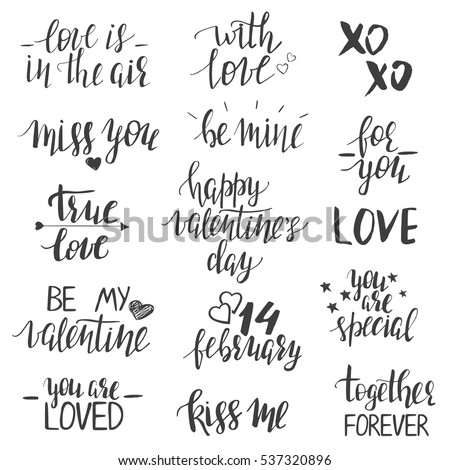 love is
in the air
with
love
XO
XO
miss you
be mine
for
you
true
love
happy
valentine's
day
LOVE
BE MY
valentine
14
february
you
are
special
you are
LOVED
kiss me
together
FOREVER
shutterstock
IMAGE ID: 537320896
www.shutterstock.com